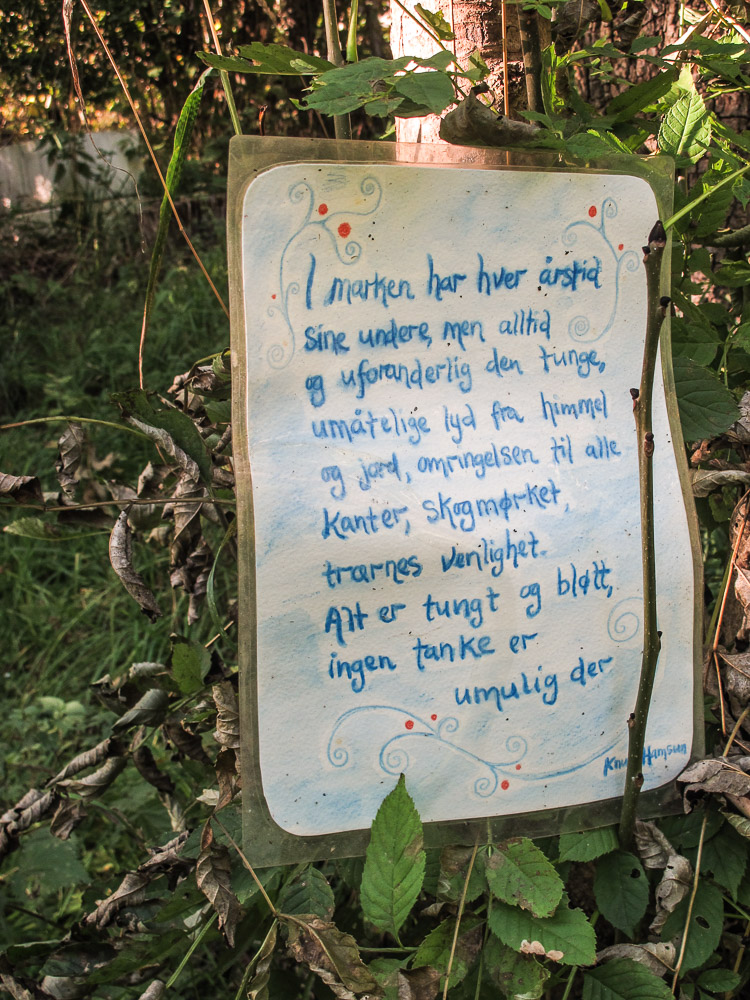 I marken har hver årstid
sine undere, men alltid
og uforanderlig den tunge,
umåtelige lyd fra himmel
og jord, omringelsen til alle
kanter, skogmørket,
trærnes venlighet.
Alt er tungt og bløtt,
ingen tanke er
umulig der
Knut Hamsun